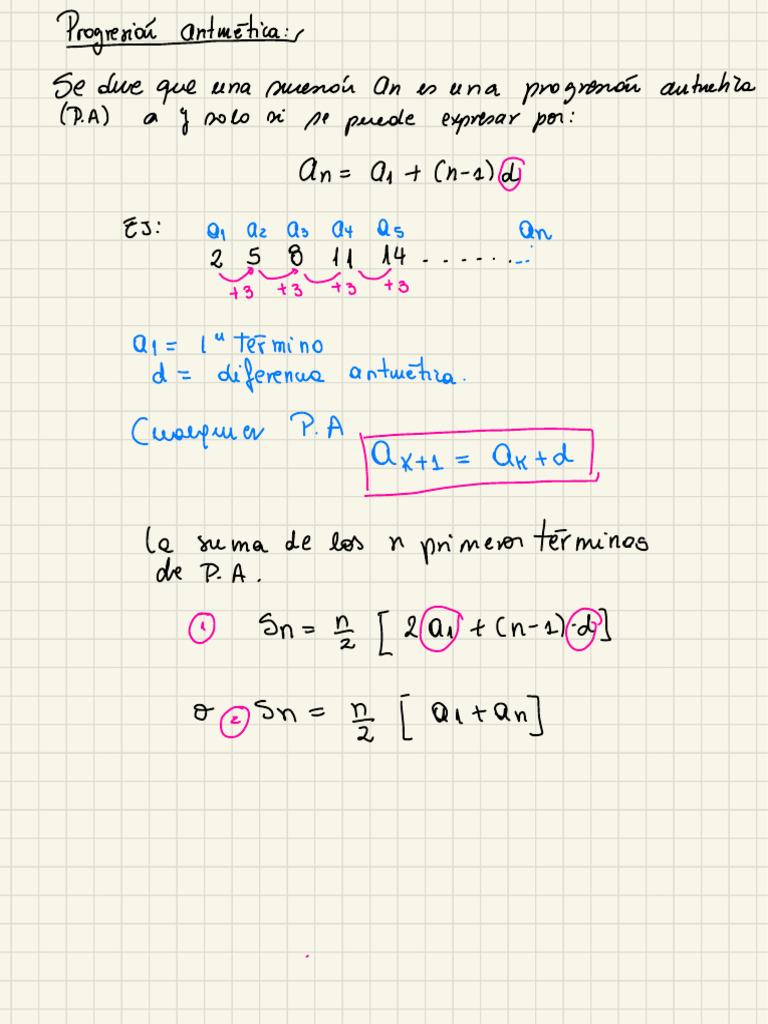 Progresión aritmética:
Se dice que una sucesión an es una progresión aritmética
(P.A) a y solo si se puede expresar por:
an = a1 + (n-1) d
EJ: a1 a2 a3 a4 a5 an
2 5 8 11 14 . . . . . . . . .
+3 +3 +3 +3
a1 = 1er término
d = diferencia aritmética.
Cualquier P.A
aK+1 = aK + d
La suma de los n primeros términos
de P.A.
1 Sn = n/2 [ 2 a1 + (n-1) · d ]
o 2 Sn = n/2 [ a1 + an ]